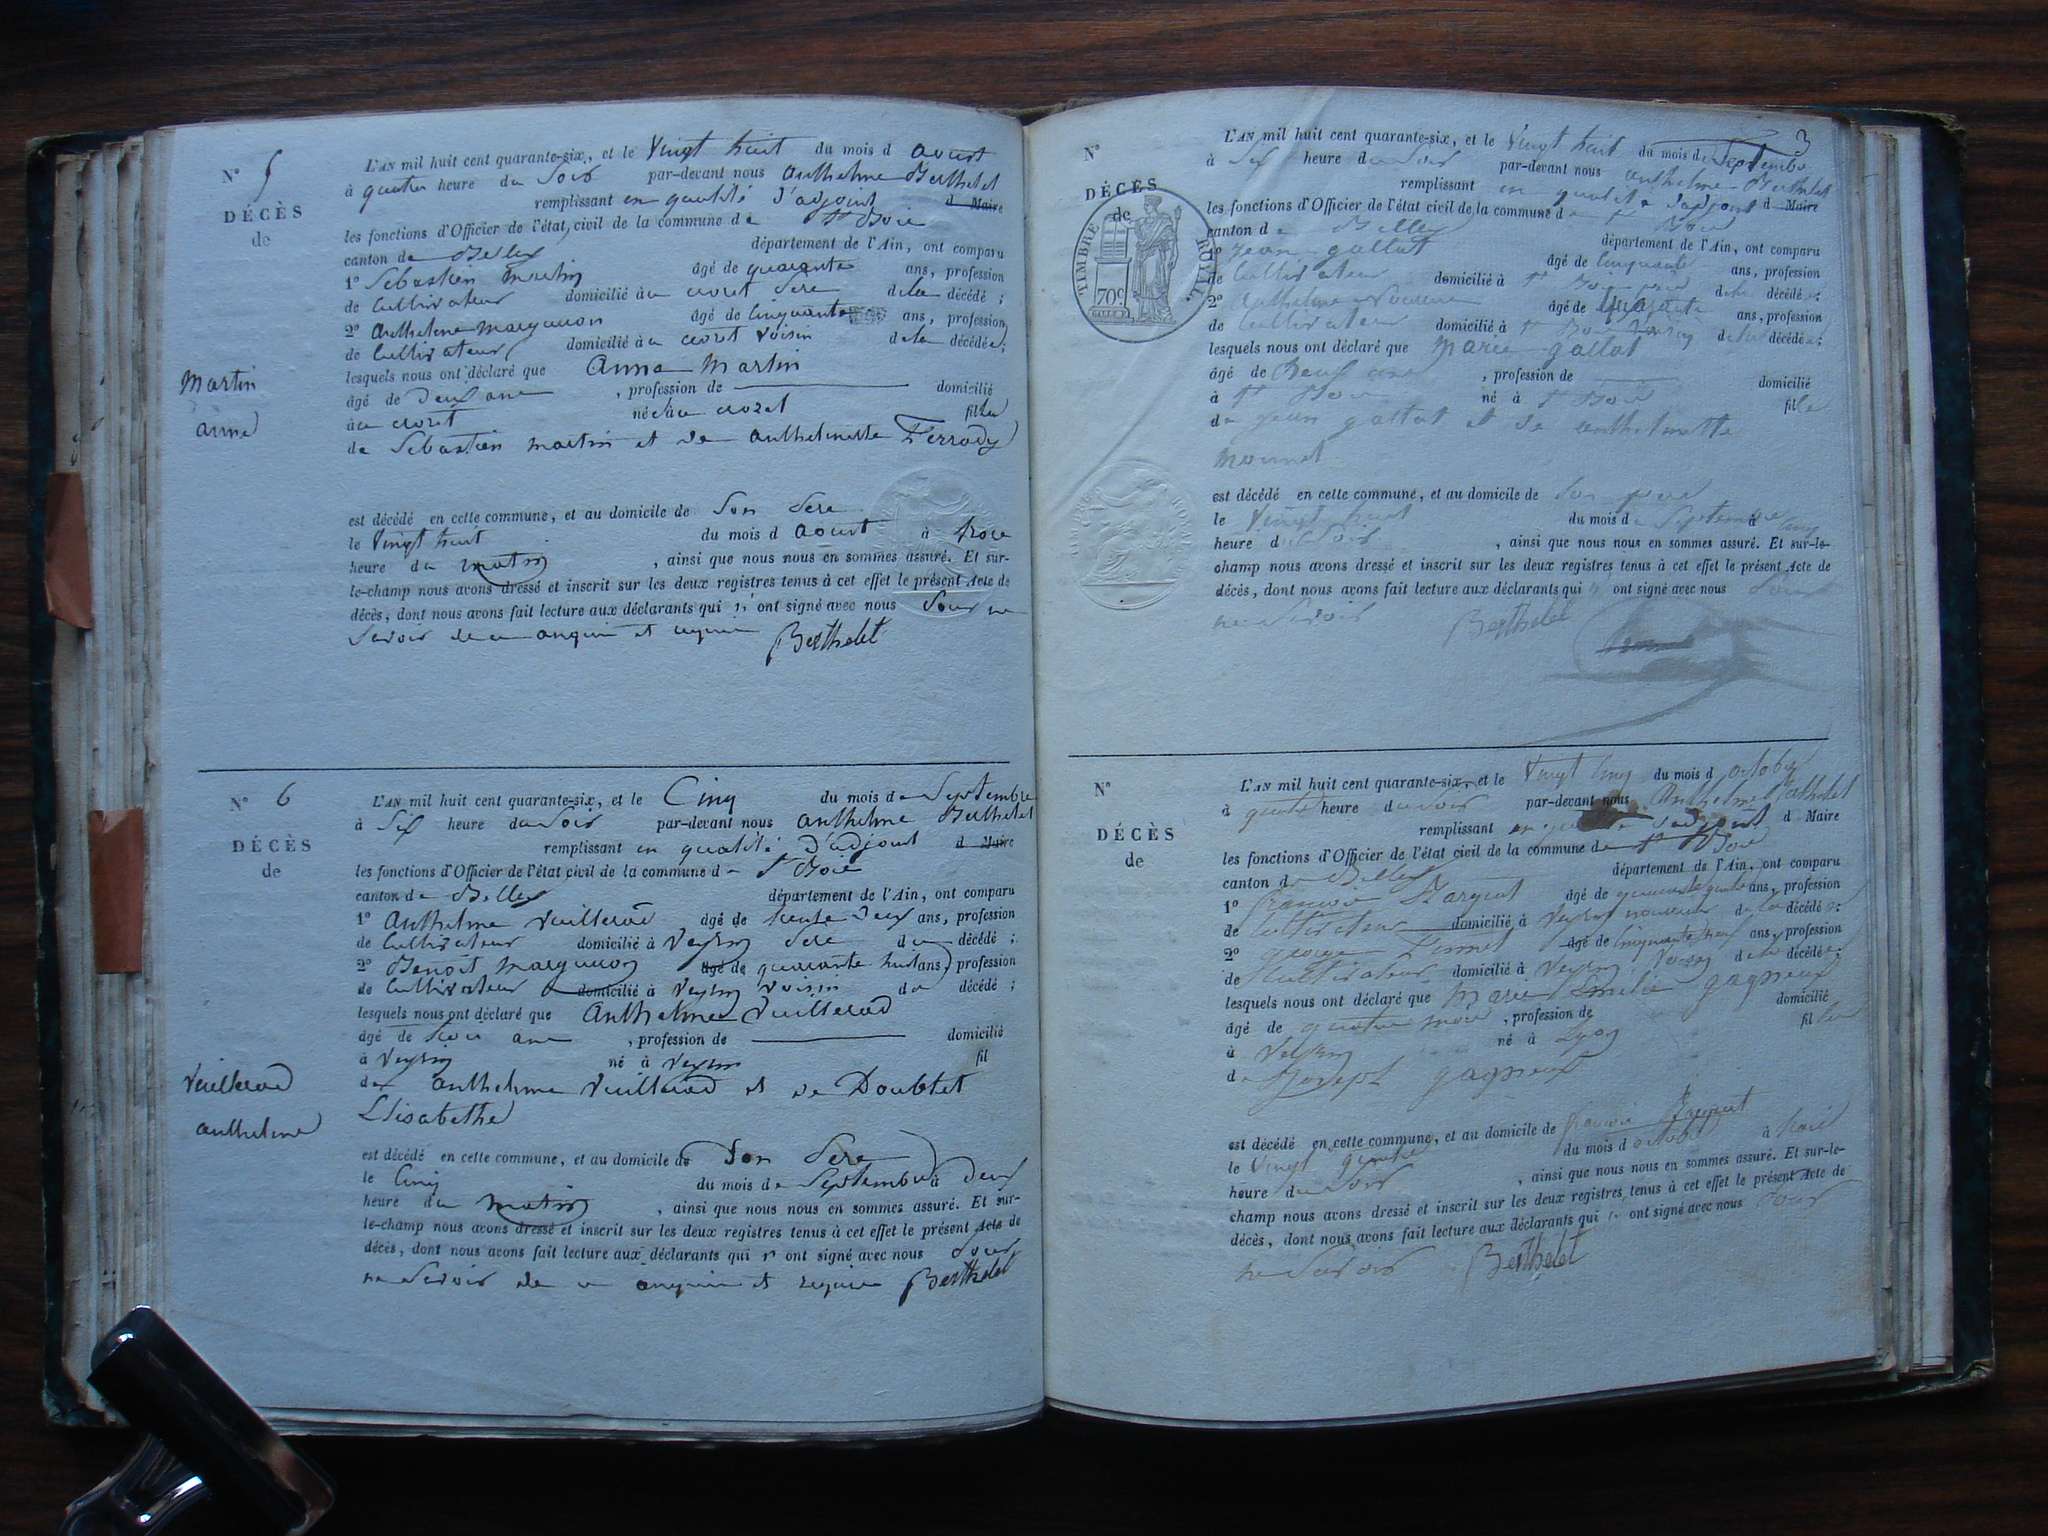 N° 5
DÉCÈS
de
Martin
anne
L'AN mil huit cent quarante-six, et le Vingt huit du mois d aoust
à quatre heure du Soir par-devant nous Anthelme Berthelet
remplissant en qualité d'adjoint d Maire
les fonctions d'Officier de l'état civil de la commune de St Boie
canton de Belley département de l'Ain, ont comparu
1° Sebastien Martin âgé de quarante ans, profession
de Cultivateur domicilié au crozet Pere de la décédée ;
2° Anthelme marquuon âgé de Cinquante ans, profession
de Cultivateur domicilié au crozet Voisin de la décédée ;
lesquels nous ont déclaré que Anne Martin
âgé de deux ans , profession de domicilié
au crozet née au crozet fille
de Sebastien Martin et de anthelmette Perrody
est décédé en cette commune, et au domicile de Son Pere
le Vingt huit du mois d aoust à trois
heure du matin , ainsi que nous nous en sommes assuré. Et sur-
le-champ nous avons dressé et inscrit sur les deux registres tenus à cet effet le présent Acte de
décès, dont nous avons fait lecture aux déclarants qui n'ont signé avec nous Pour ne
Savoir de ce enquis et requis Berthelet
N° 6
DÉCÈS
de
Vuillerod
anthelme
L'AN mil huit cent quarante-six, et le Cinq du mois de Septembre
à Six heure du Soir par-devant nous Anthelme Berthelet
remplissant en qualité d'adjoint d Maire
les fonctions d'Officier de l'état civil de la commune de St Boie
canton de Belley département de l'Ain, ont comparu
1° Anthelme Vuillerod âgé de trente deux ans, profession
de Cultivateur domicilié à Veyrin Pere du décédé ;
2° Benoit Marquuon âgé de quarante huit ans, profession
de Cultivateur domicilié à Veyrin Voisin du décédé ;
lesquels nous ont déclaré que Anthelme Vuillerod
âgé de trois ans , profession de domicilié
à Veyrin né à Veyrin fil
de anthelme Vuillerod et de Doubtet
Elisabethe
est décédé en cette commune, et au domicile de Son Pere
le Cinq du mois de Septembre à deux
heure du matin , ainsi que nous nous en sommes assuré. Et sur-
le-champ nous avons dressé et inscrit sur les deux registres tenus à cet effet le présent Acte de
décès, dont nous avons fait lecture aux déclarants qui n'ont signé avec nous Pour
ne Savoir de ce enquis et requis Berthelet
3
N°
DÉCÈS
de
TIMBRE ROYAL.
70c
L'AN mil huit cent quarante-six, et le Vingt huit du mois de Septembre
à Six heure du Soir par-devant nous anthelme Berthelet
remplissant en qualité d'adjoint d Maire
les fonctions d'Officier de l'état civil de la commune de St Boie
canton de Belley département de l'Ain, ont comparu
1° Jean gallat âgé de Cinquante ans, profession
de Cultivateur domicilié à St Boie pere de la décédée ;
2° Anthelme âgé de quarante ans, profession
de Cultivateur domicilié à St Boie de la décédée ;
lesquels nous ont déclaré que Marie gallat
âgé de ans , profession de domicilié
à St Boie né à St Boie fille
de jean gallat et de anthelmette
est décédé en cette commune, et au domicile de Son pere
le Vingt huit du mois de Septembre à Cinq
heure du Soir , ainsi que nous nous en sommes assuré. Et sur-le-
champ nous avons dressé et inscrit sur les deux registres tenus à cet effet le présent Acte de
décès, dont nous avons fait lecture aux déclarants qui n'ont signé avec nous Pour
ne Savoir Berthelet
N°
DÉCÈS
de
L'AN mil huit cent quarante-six, et le Vingt Cinq du mois d octobre
à quatre heure du soir par-devant nous Anthelme Berthelet
remplissant en qualité d'adjoint d Maire
les fonctions d'Officier de l'état civil de la commune de St Boie
canton de Belley département de l'Ain, ont comparu
1° francois âgé de quarante quatre ans, profession
de Cultivateur domicilié à Veyrin de la décédée ;
2° george âgé de Cinquante neuf ans, profession
de Cultivateur domicilié à Veyrin Voisin de la décédée ;
lesquels nous ont déclaré que Marie Emelie gagneux
âgé de quatre mois , profession de domicilié
à Veyrin né à Lyon fille
de Joseph gagneux
est décédé en cette commune, et au domicile de francois
le Vingt quatre du mois d octobre à huit
heure du soir , ainsi que nous nous en sommes assuré. Et sur-le-
champ nous avons dressé et inscrit sur les deux registres tenus à cet effet le présent Acte de
décès, dont nous avons fait lecture aux déclarants qui n'ont signé avec nous Pour
ne Savoir Berthelet